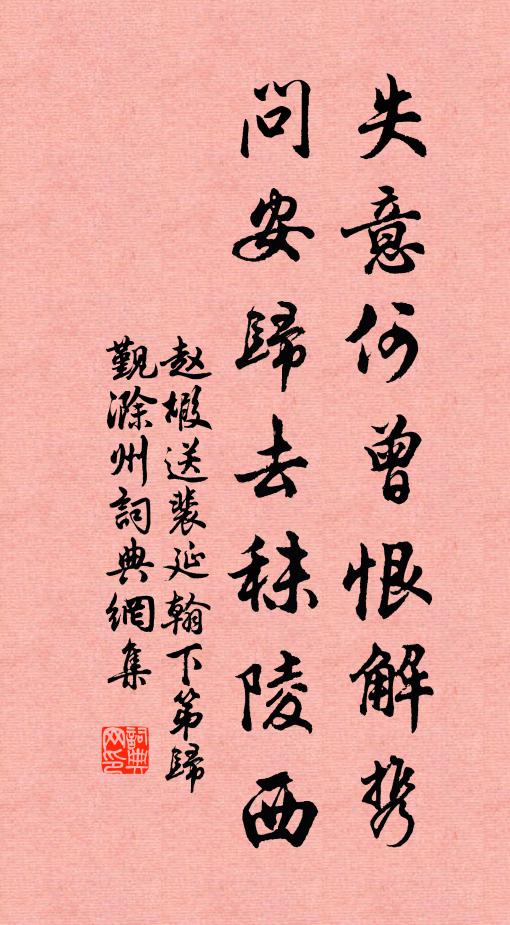 失意何曾恨解携
問安歸去秣陵西
赵嘏送裴延翰下第歸
觐滁州詞典網集
詞典网印